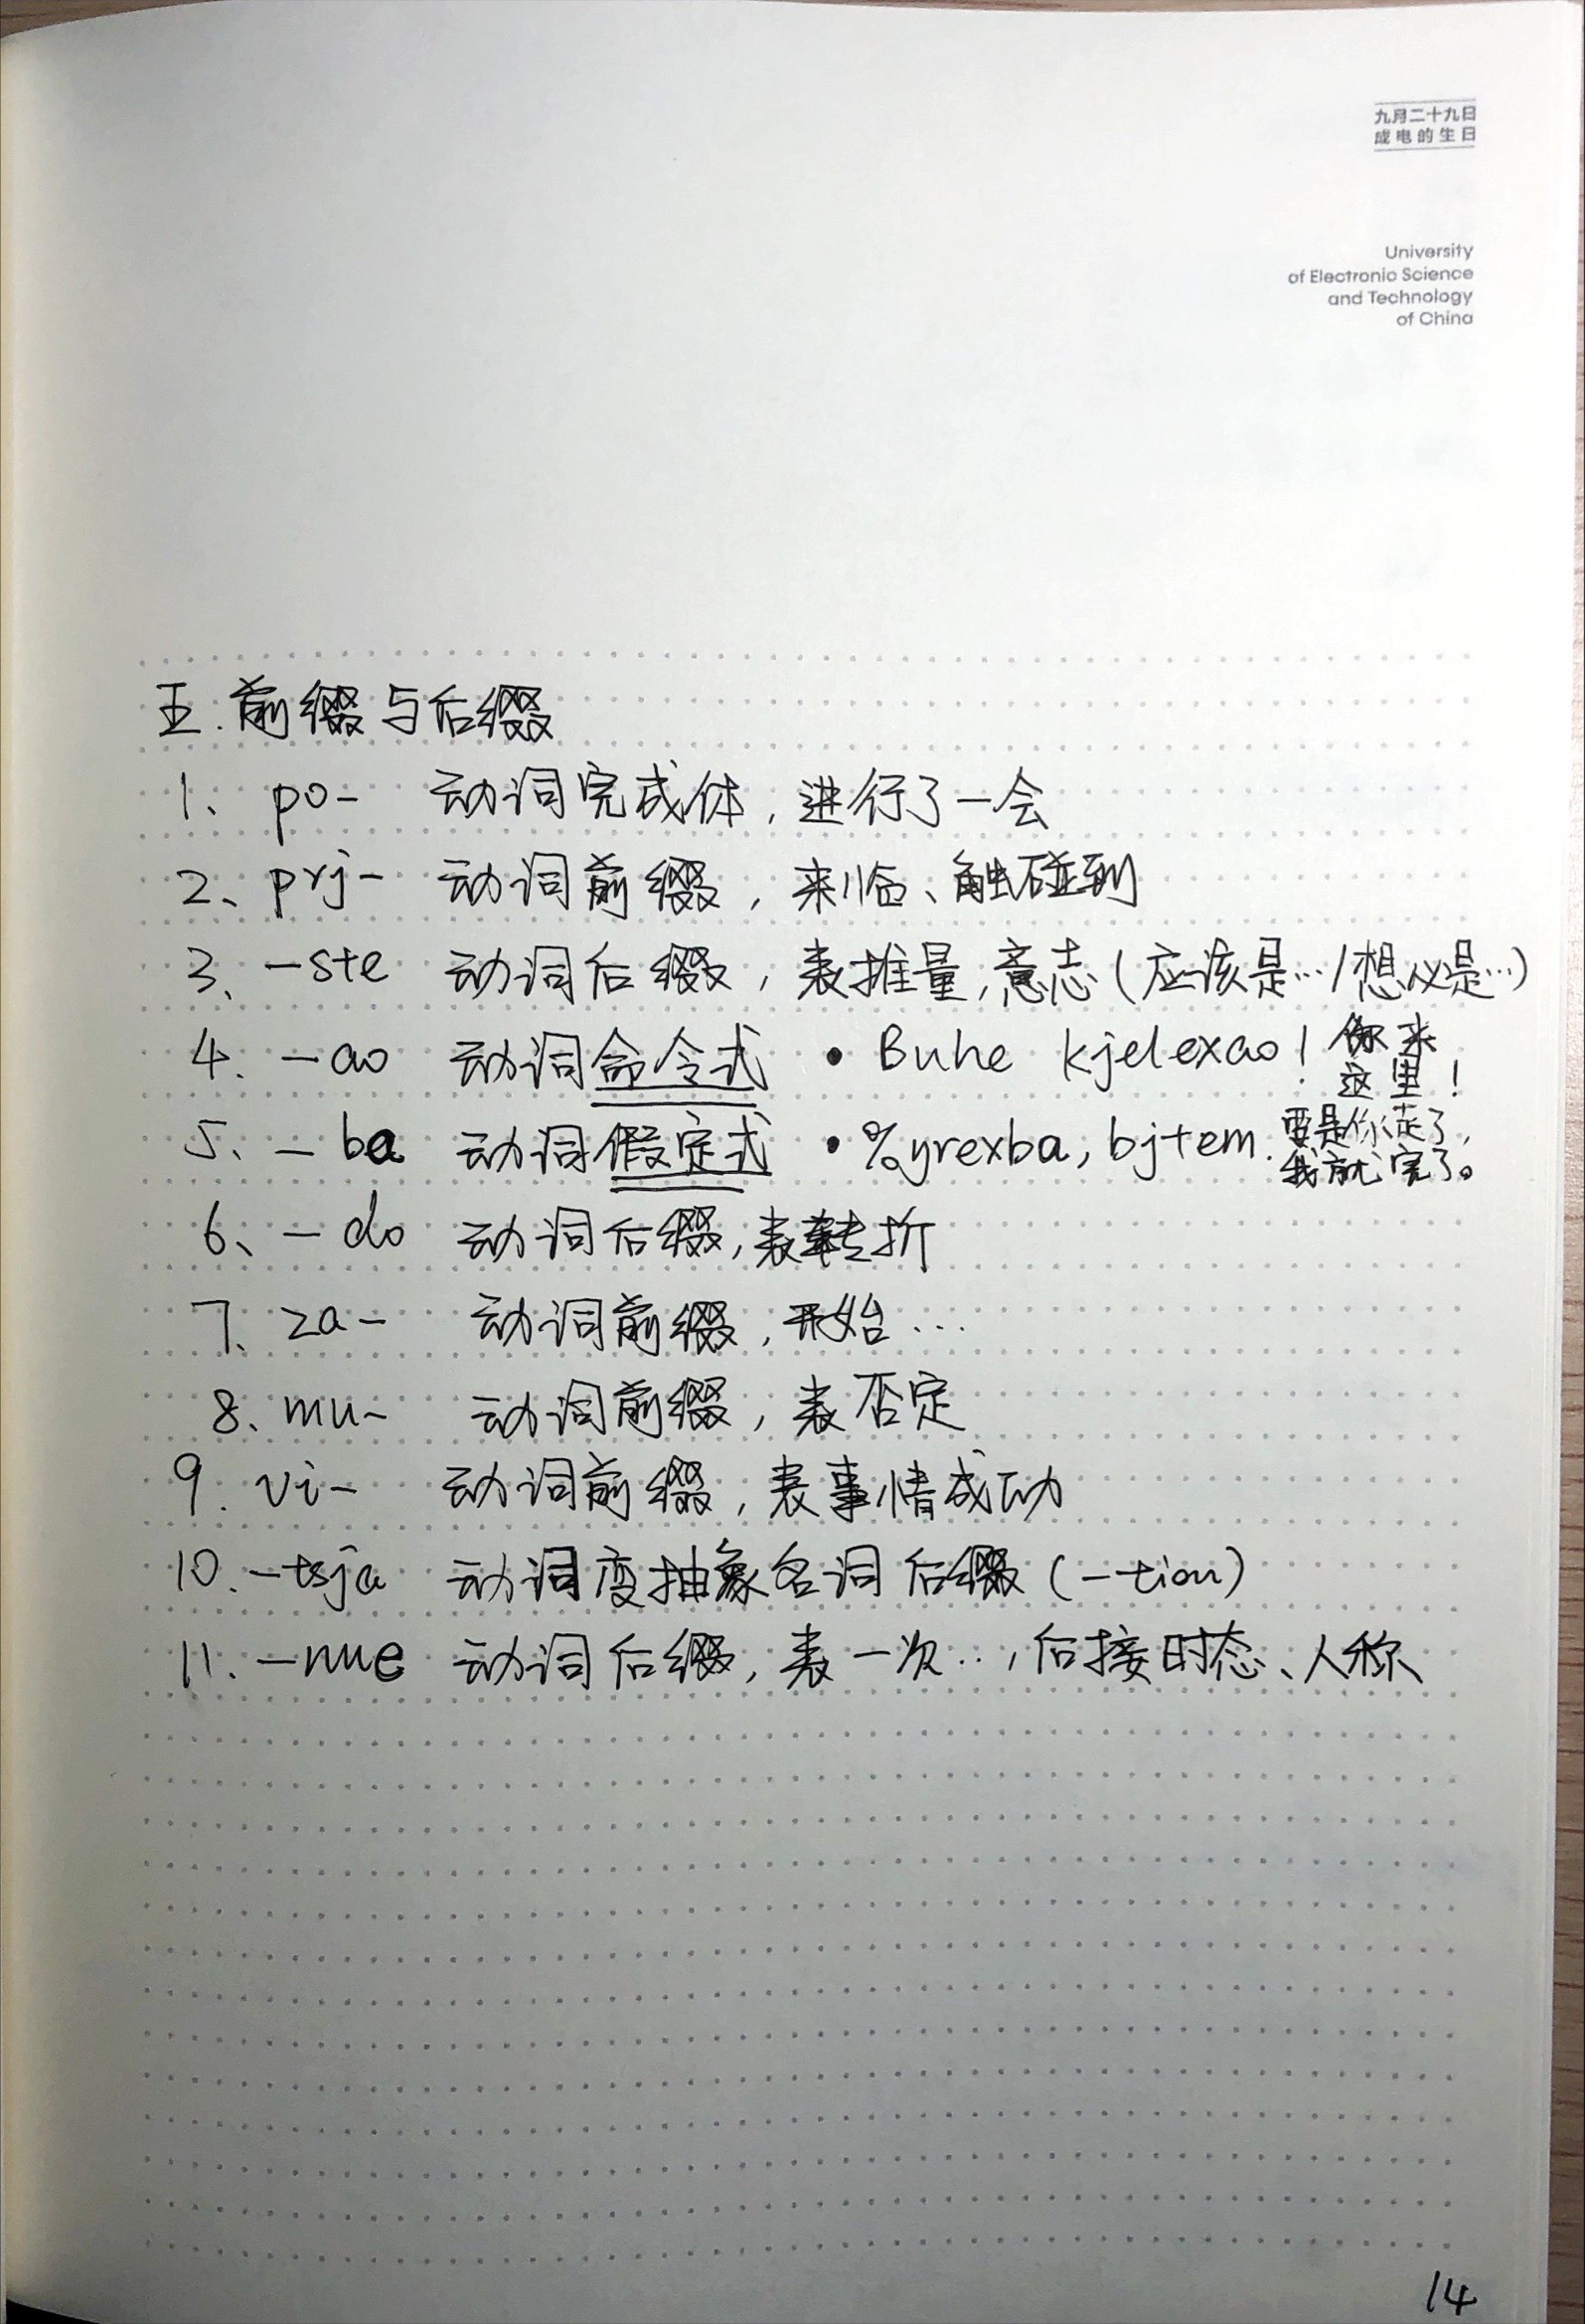 九月二十九日
成电的生日
University
of Electronic Science
and Technology
of China
五.前缀与后缀
1、po- 动词完成体,进行了一会
2、prj- 动词前缀,来临、触碰到
3、-ste 动词后缀,表推量,意志(应该是…/想必是…)
4、-ao 动词命令式 • Buhe kjelexao! 你来这里!
5、-ba 动词假定式 • %yrexba, bjtem. 要是你走了,我就完了。
6、-do 动词后缀,表转折
7、za- 动词前缀,开始…
8、mu- 动词前缀,表否定
9.vi- 动词前缀,表事情成功
10.-tsja 动词变抽象名词后缀(-tion)
11.-nue 动词后缀,表一次…,后接时态、人称
14